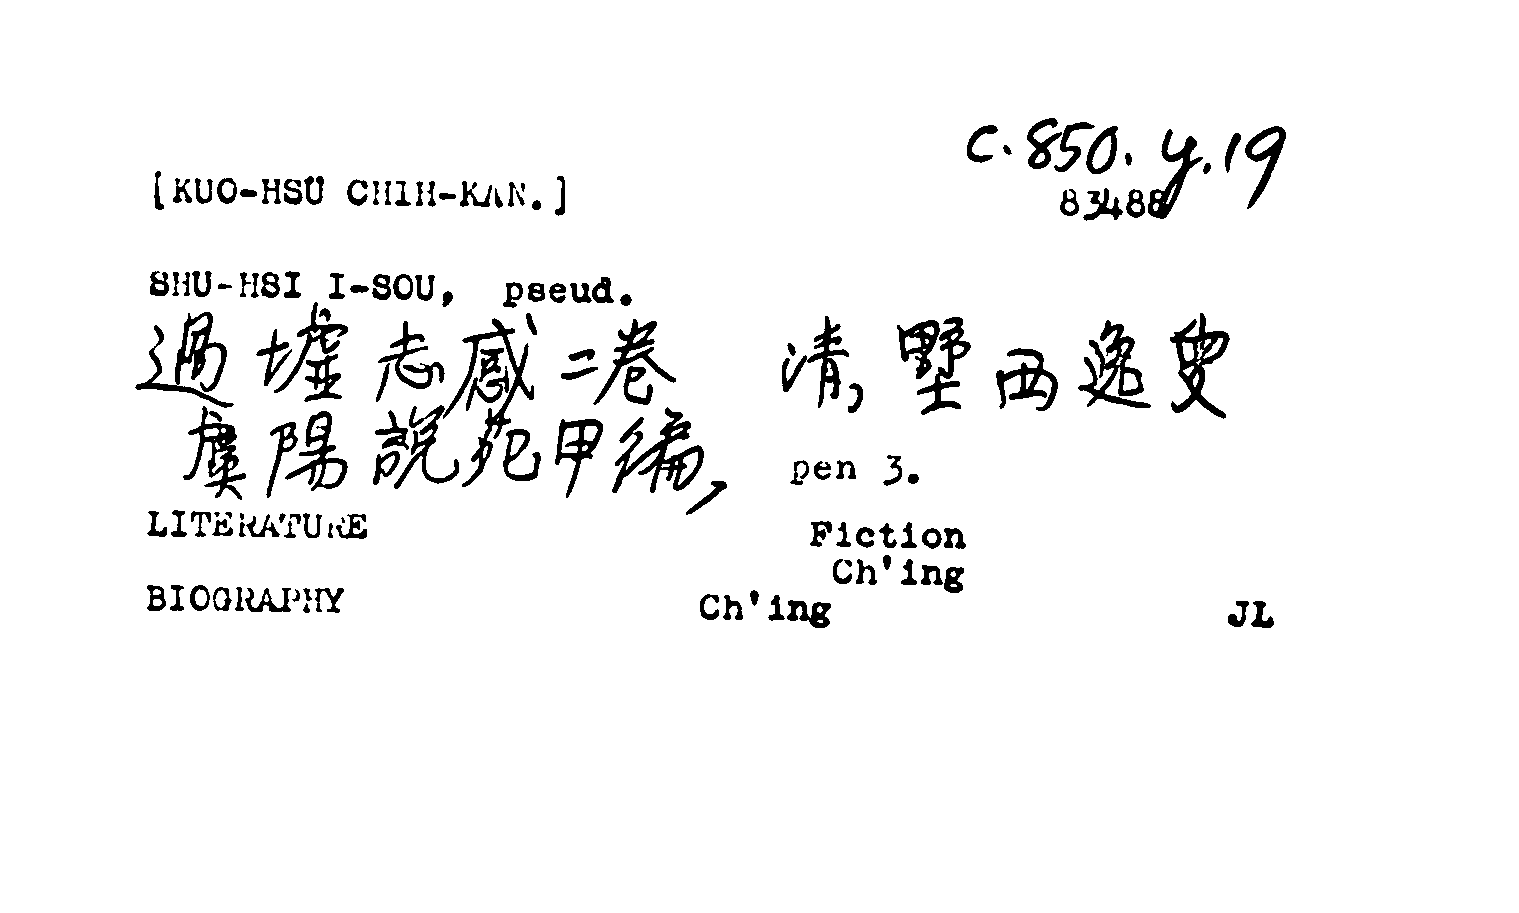 C.850.y.19
[KUO-HSÜ CHIH-KAN.] 83488
SHU-HSI I-SOU, pseud.
過墟志感二卷 清, 墅西逸叟
虞陽說苑甲編, pen 3.
LITERATURE Fiction
Ch'ing
BIOGRAPHY Ch'ing JL